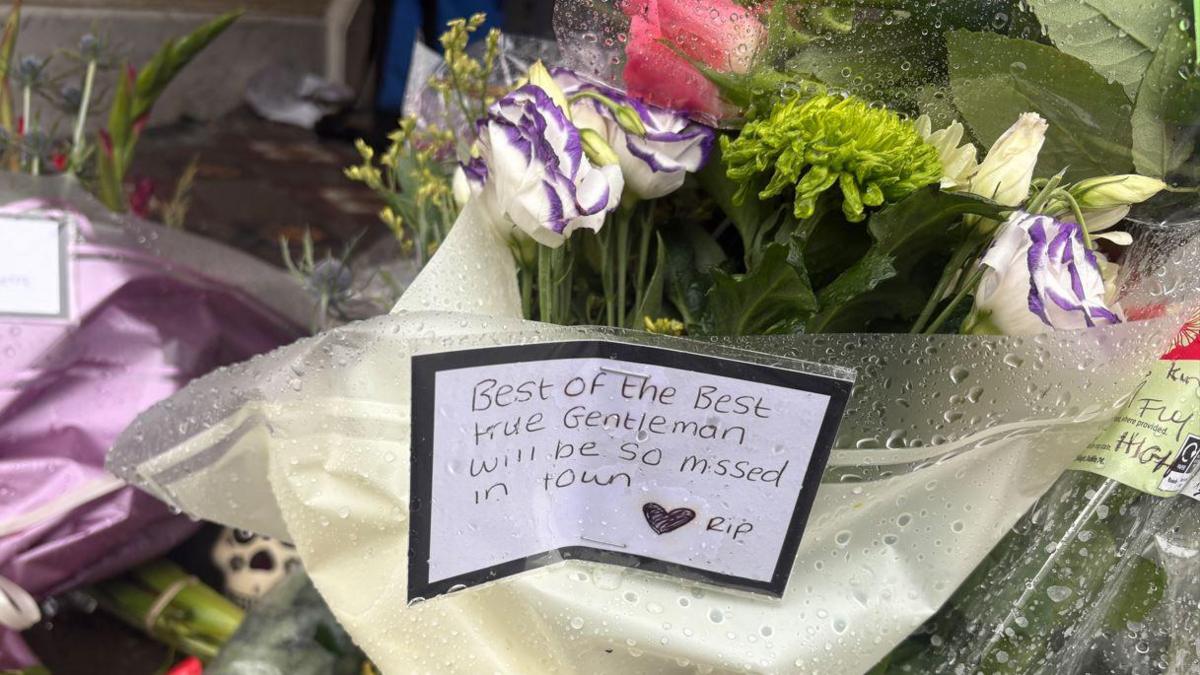 Best of the Best
true Gentleman
will be so missed
in town
RIP
Fly
where provided.
HIGH